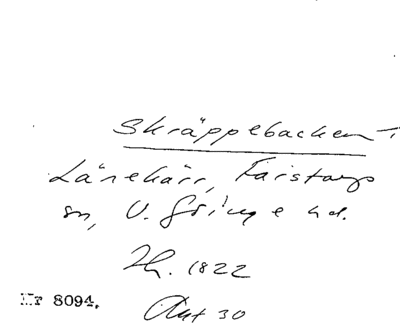 Skräppebacken
Länekärr, Färstorps
sn, V. Göinge hd.
Th. 1822
Akt 30
Nr 8094.